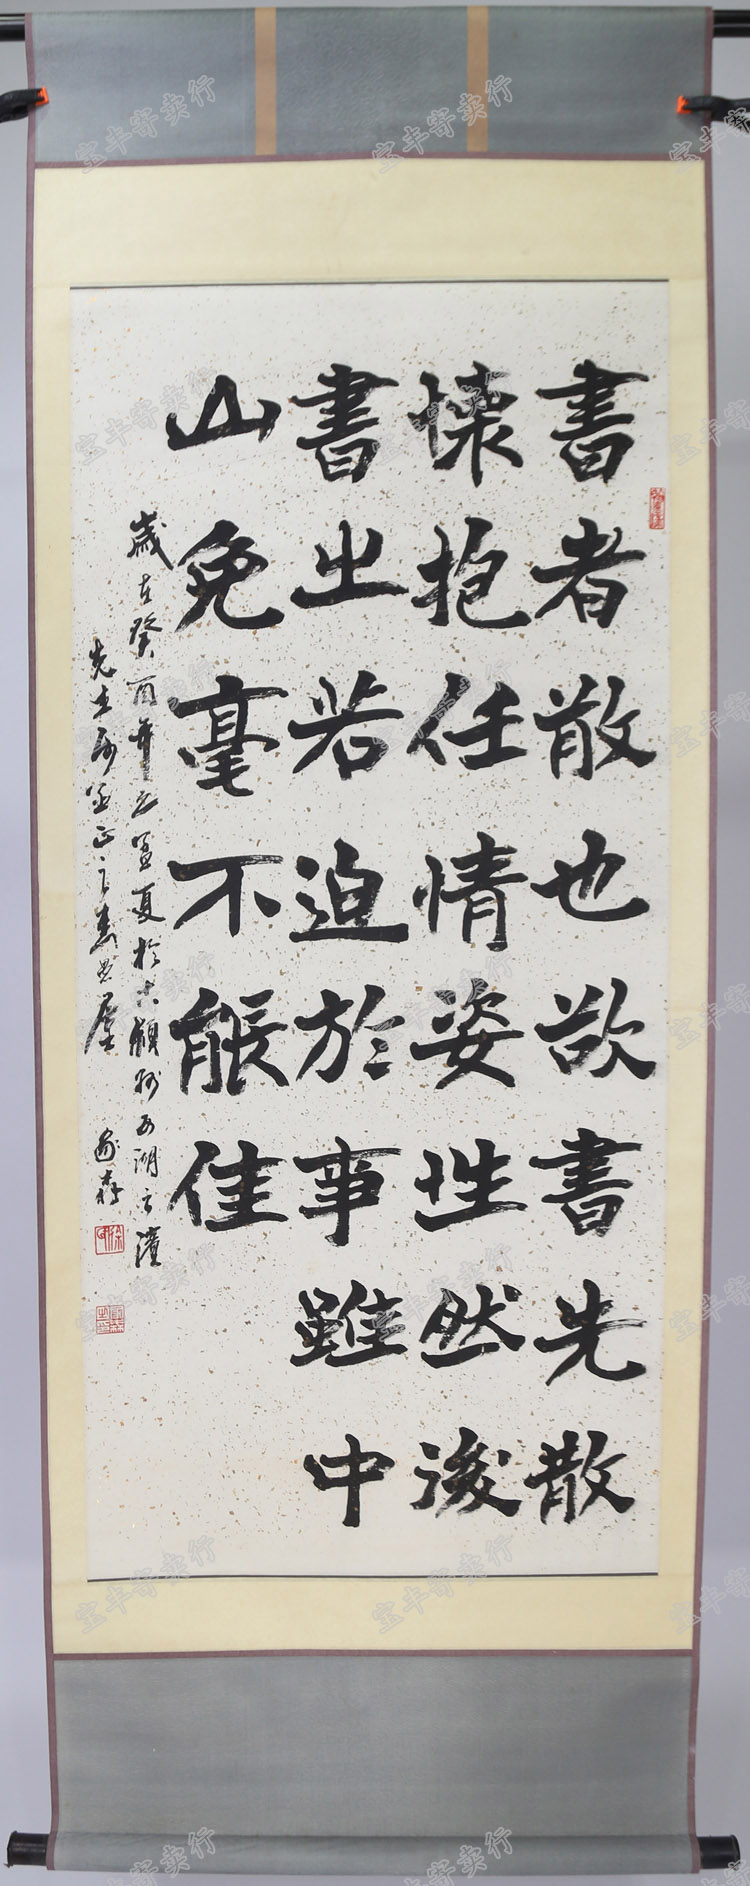 書者散也欲書先散
懷抱任情姿性然後
書之若迫於事雖中
山兔毫不能佳
歲在癸酉年之孟夏於古潁州西湖之濱
先生
正之
宝丰寄卖行